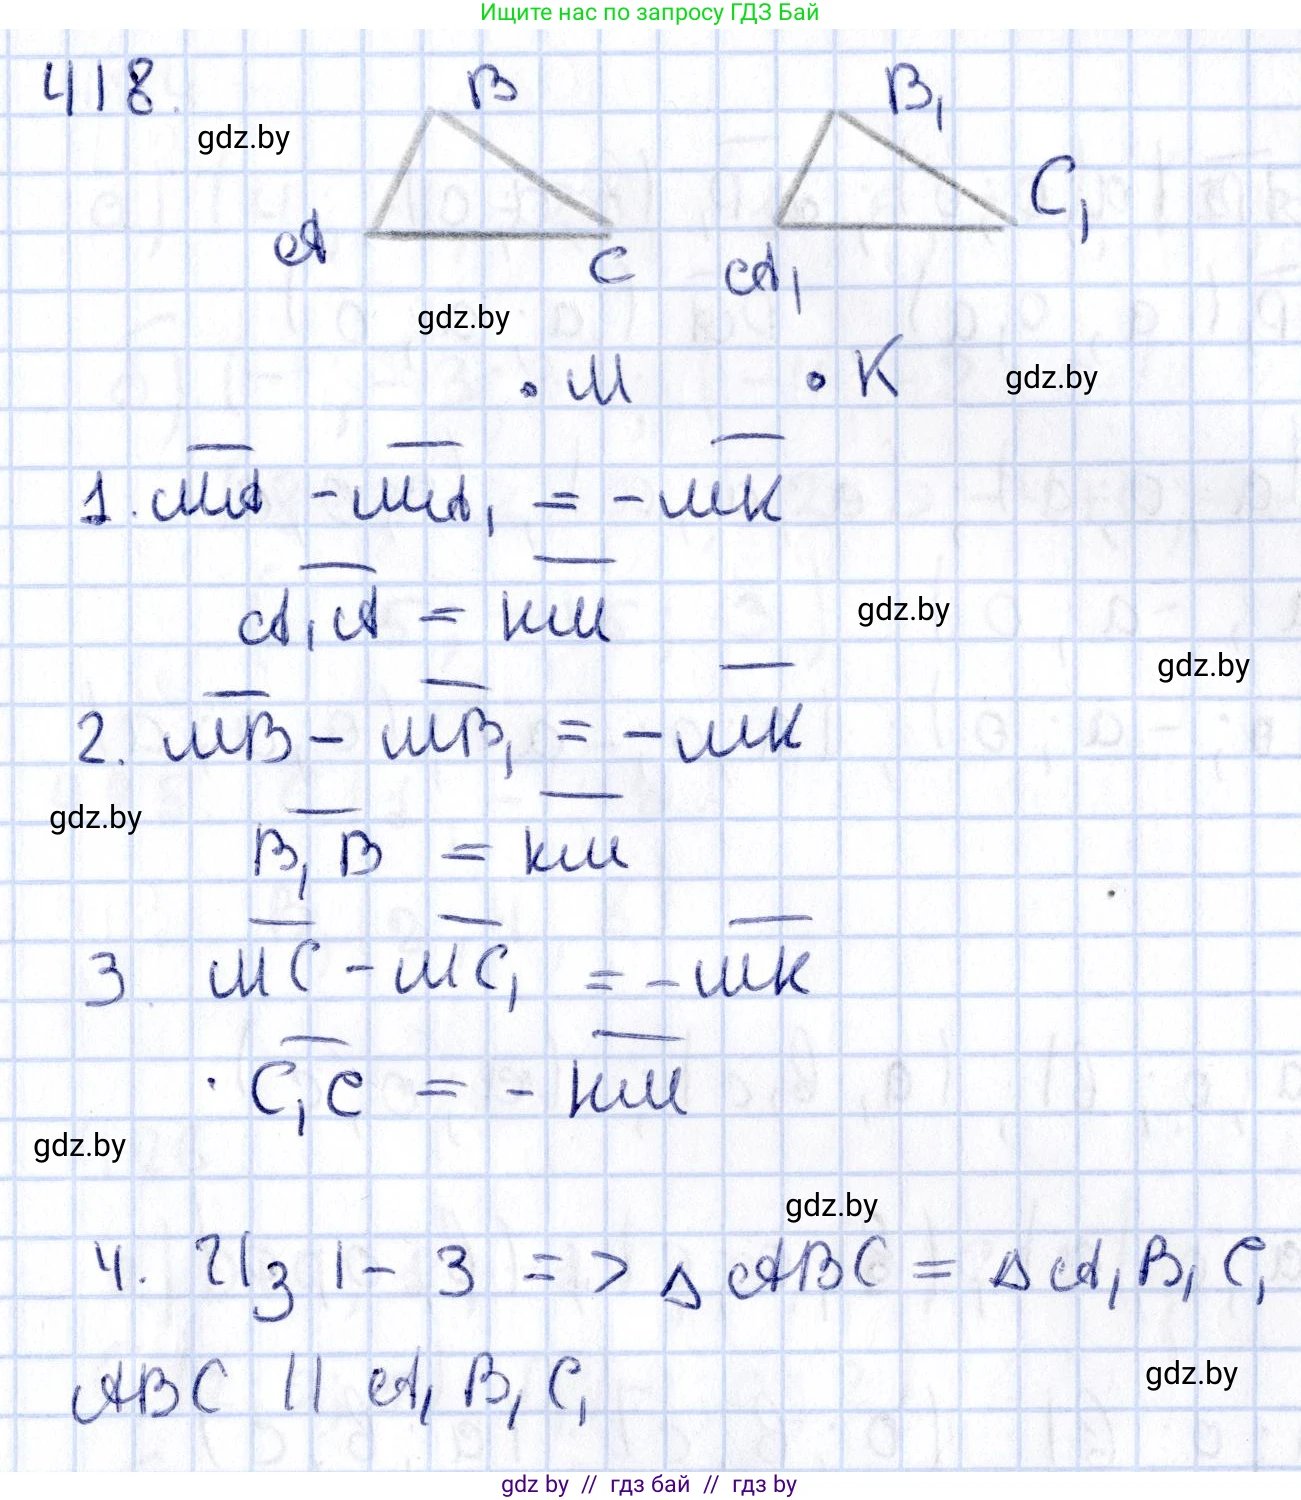 Ищите нас по запросу ГДЗ Бай
418.
B
B₁
gdz.by
C₁
A
C
A₁
gdz.by
M
K
gdz.by
1. M̅A̅ - M̅A̅₁ = - M̅K̅
A̅₁A̅ = K̅M̅
gdz.by
gdz.by
2. M̅B̅ - M̅B̅₁ = - M̅K̅
gdz.by
B̅₁B̅ = K̅M̅
3. M̅C̅ - M̅C̅₁ = - M̅K̅
C̅₁C̅ = - K̅M̅
gdz.by
gdz.by
4. Из 1 - 3 => Δ ABC = Δ A₁B₁C₁
ABC || A₁B₁C₁
gdz.by
gdz by // гдз бай // гдз by